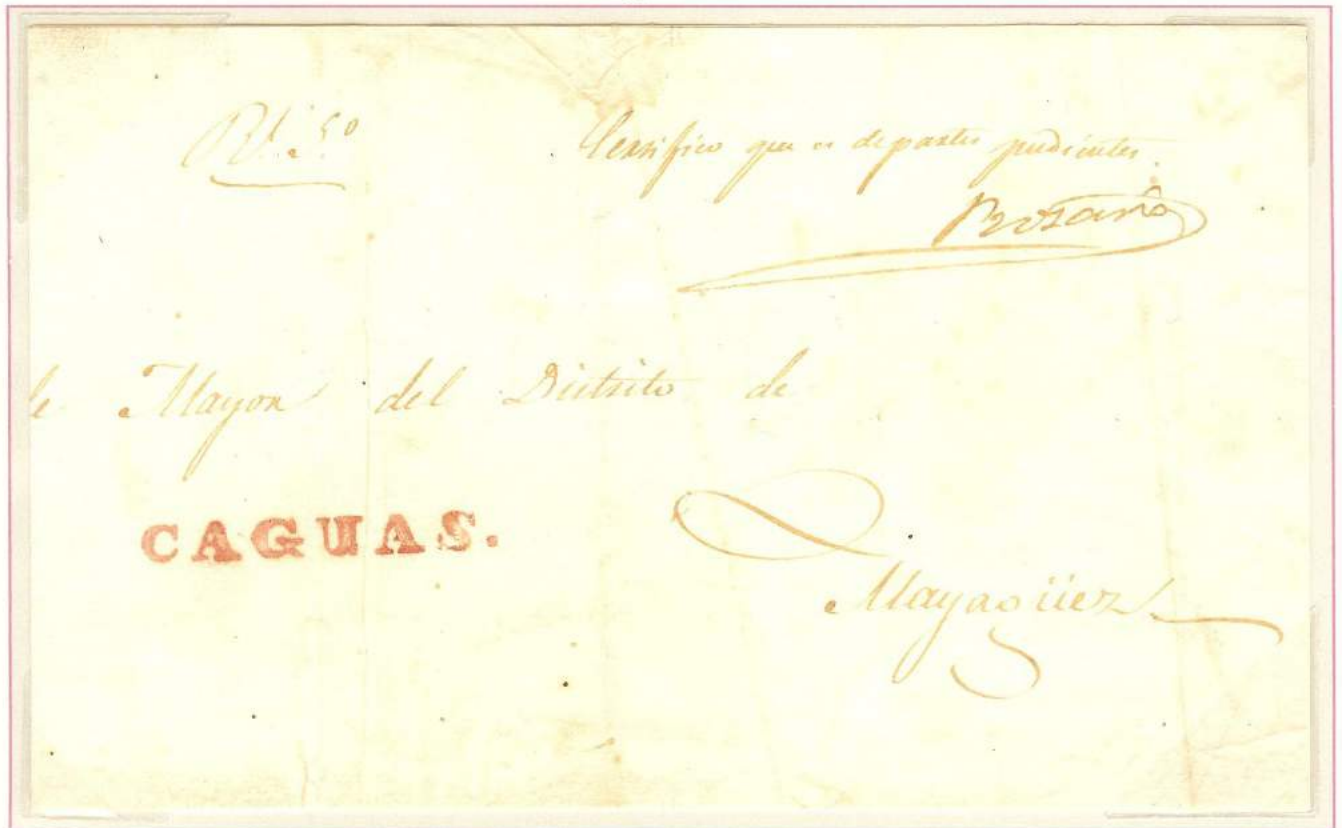 R.l S.o
Certifico que es departes pudientes.
Rosario
le Mayor del Distrito de
CAGUAS.
Mayagüez